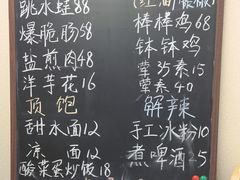 跳水蛙88
爆脆肠58
盐煎肉48
洋芋花16
顶饱
甜水面12
凉面12
酸菜蛋炒饭18
棒棒鸡68
钵钵鸡
荤35素15
荤65素40
解辣
手工冰粉10
煮啤酒25